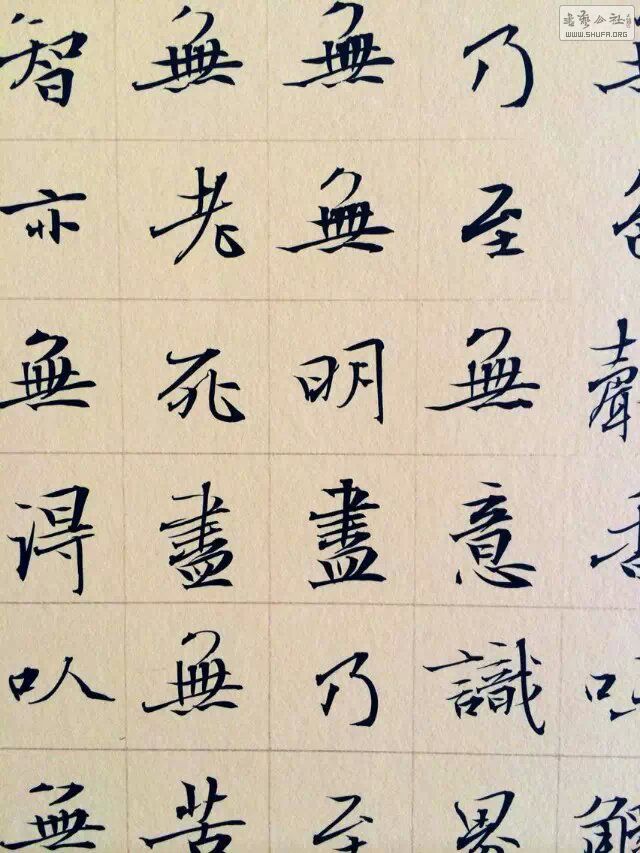 色聲香味觸
乃至無意識界
無無明盡乃至
無老死盡無苦
智亦無得以無
書藝公社
WWW.SHUFA.ORG